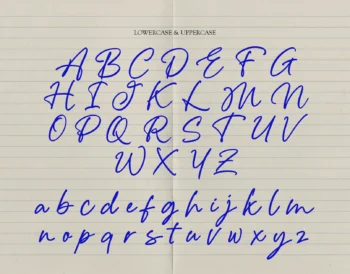 LOWERCASE & UPPERCASE
A B C D E F G
H I J K L M N
O P Q R S T U V
W X Y Z
a b c d e f g h i j k l m
n o p q r s t u v w x y z